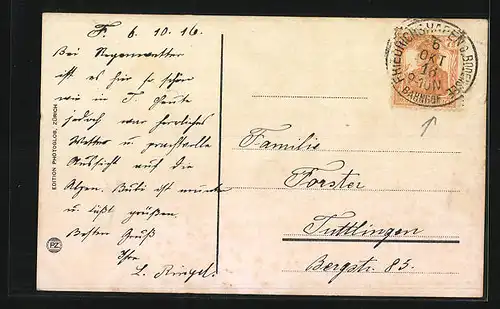 F. 6. 10. 16
Bei Regenwetter
ist es hier so schön
wie in T. Heute
jedoch war herrliches
Wetter u. prachtvolle
Aussicht auf die
Alpen. Bubi ist munter
u. läßt grüßen.
Besten Gruß
Ihre
L. Ringel.
EDITION PHOTOGLOB, ZÜRICH
PZ
FRIEDRICHSHAFEN a. BODENSEE
6
OKT
16
8-9 N
BAHNHOF
Familie
Forster
Tuttlingen
Bergstr. 85.